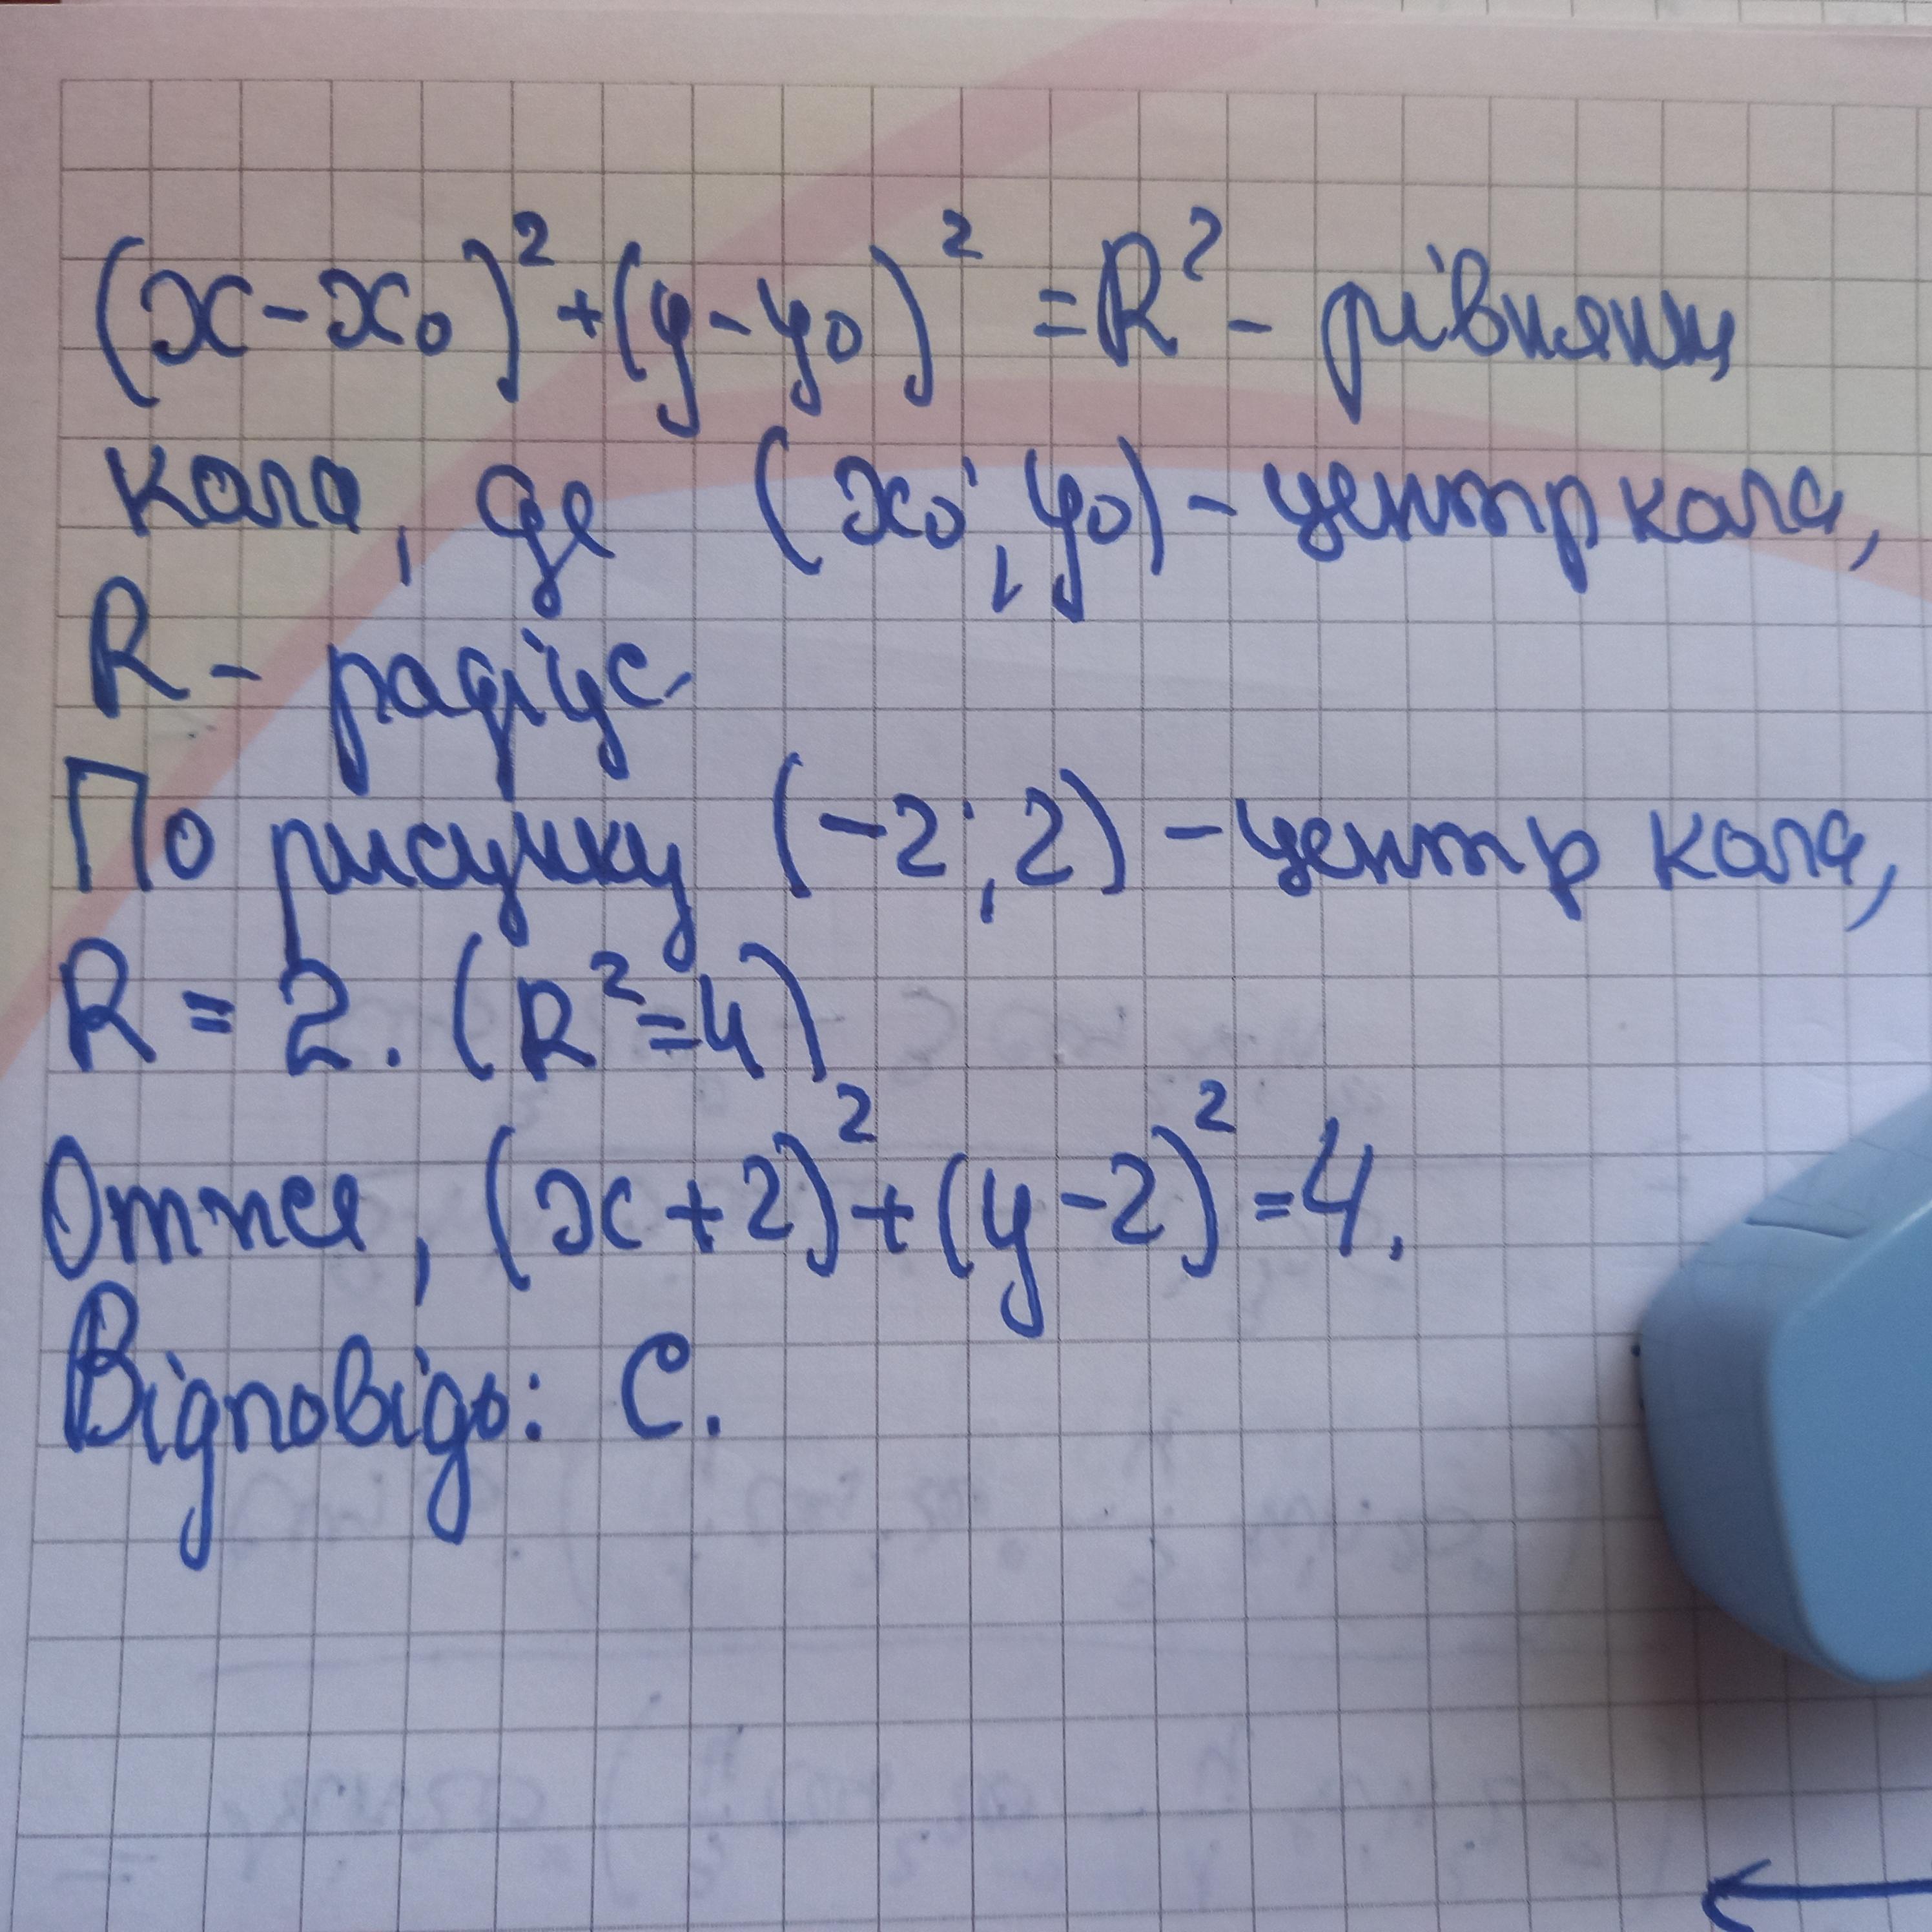 (x-x₀)²+(y-y₀)²=R² - рівнянн
кола, де (x₀; y₀) - центр кола,
R - радіус.
По рисунку (-2; 2) - центр кола,
R = 2. (R²=4)
Отже, (x+2)²+(y-2)²=4.
Відповідь: C.